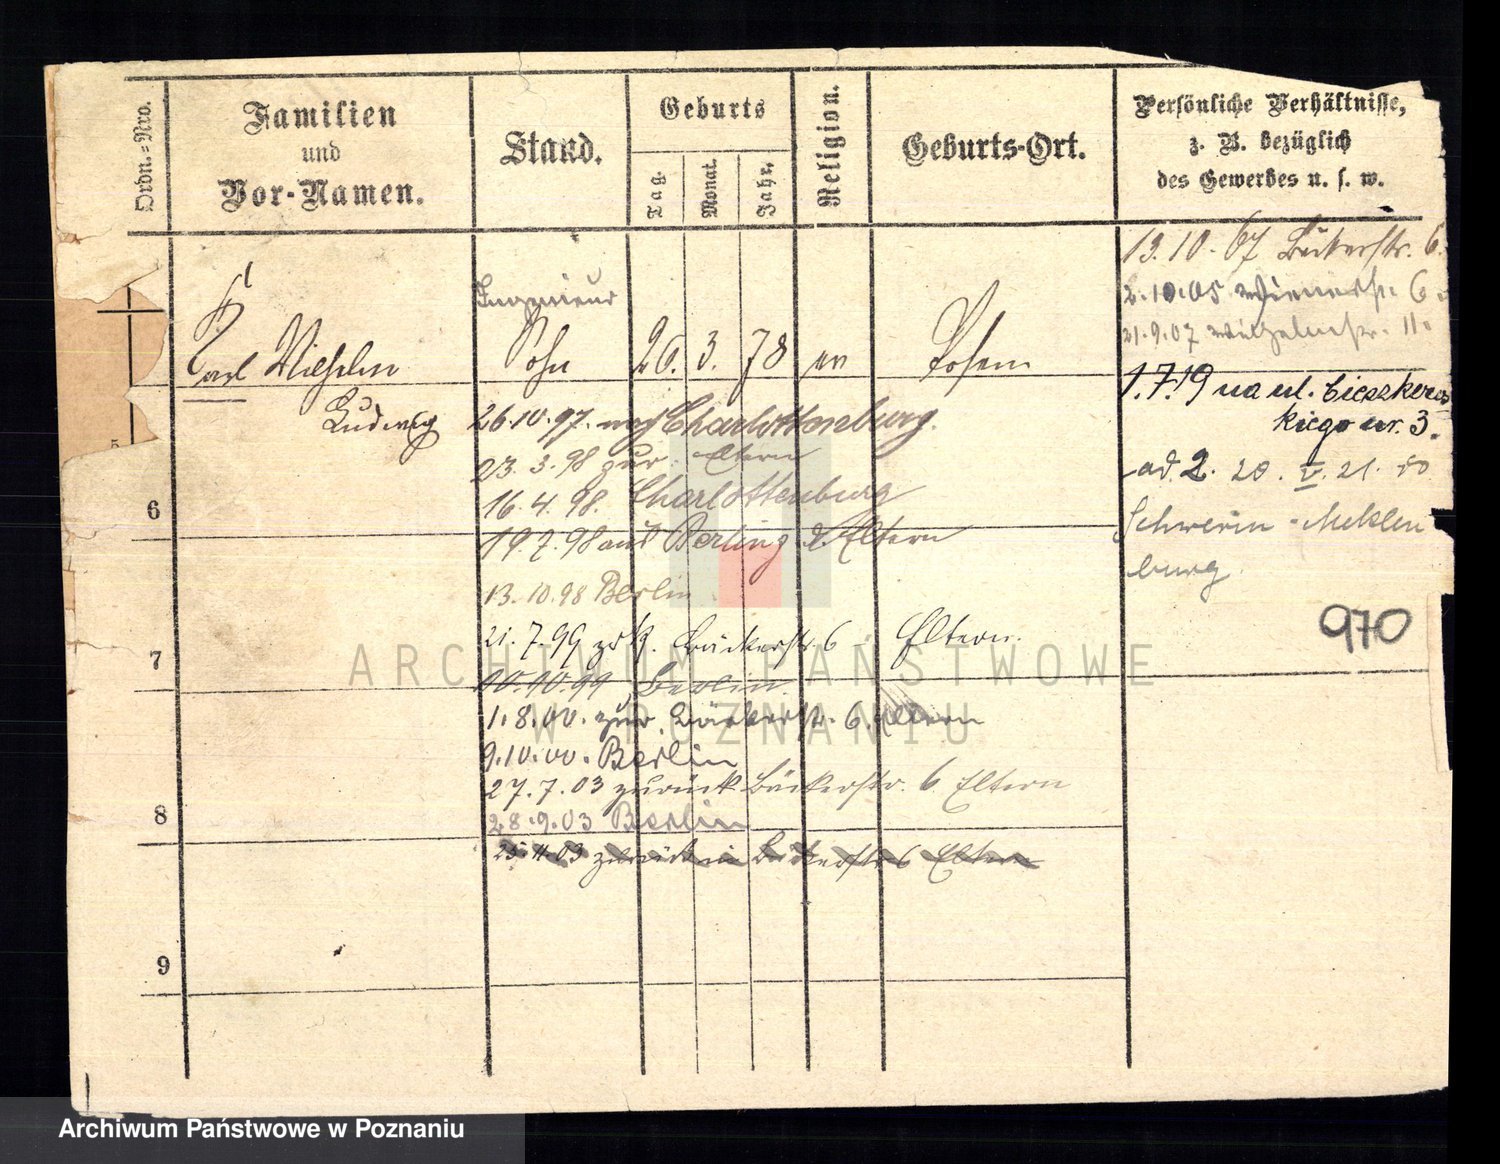 Ordn.-Nro.
Familien
und
Vor-Namen.
Stand.
Geburts
Tag.
Monat.
Jahr.
Religion.
Geburts-Ort.
Persönliche Verhältnisse,
z. B. bezüglich
des Gewerbes u. s. w.
Karl Wilhelm
Ludwig
Ingenieur
Sohn
26. 3. 78
ev
Posen
26.10.97. nach Charlottenburg.
23. 3. 98 zur Eltern
16. 4. 98. Charlottenburg
19.7.98 aus Berlin z. Eltern
13. 10. 98 Berlin
21. 7. 99 zrk. Bäckerstr. 6 Eltern.
10.10.99 Berlin
1. 8. 00. zur. Bäckerstr. 6 Eltern
9.10.00. Berlin
27. 7. 03 zurück Bäckerstr. 6 Eltern
28. 9. 03 Berlin
25. 11. 03 zurück Bäckerstr 6 Eltern
13. 10. 67 Bäckerstr. 6.
2.10.05 6
21.9.07 Wilhelmstr. 11.
1.7.19 na ul. Cieszkows
kiego nr. 3.
ad 2. 20. V. 21.
Schwerin - Meklen
burg
970
5
6
7
8
9
ARCHIWUM PAŃSTWOWE
W POZNANIU
Archiwum Państwowe w Poznaniu